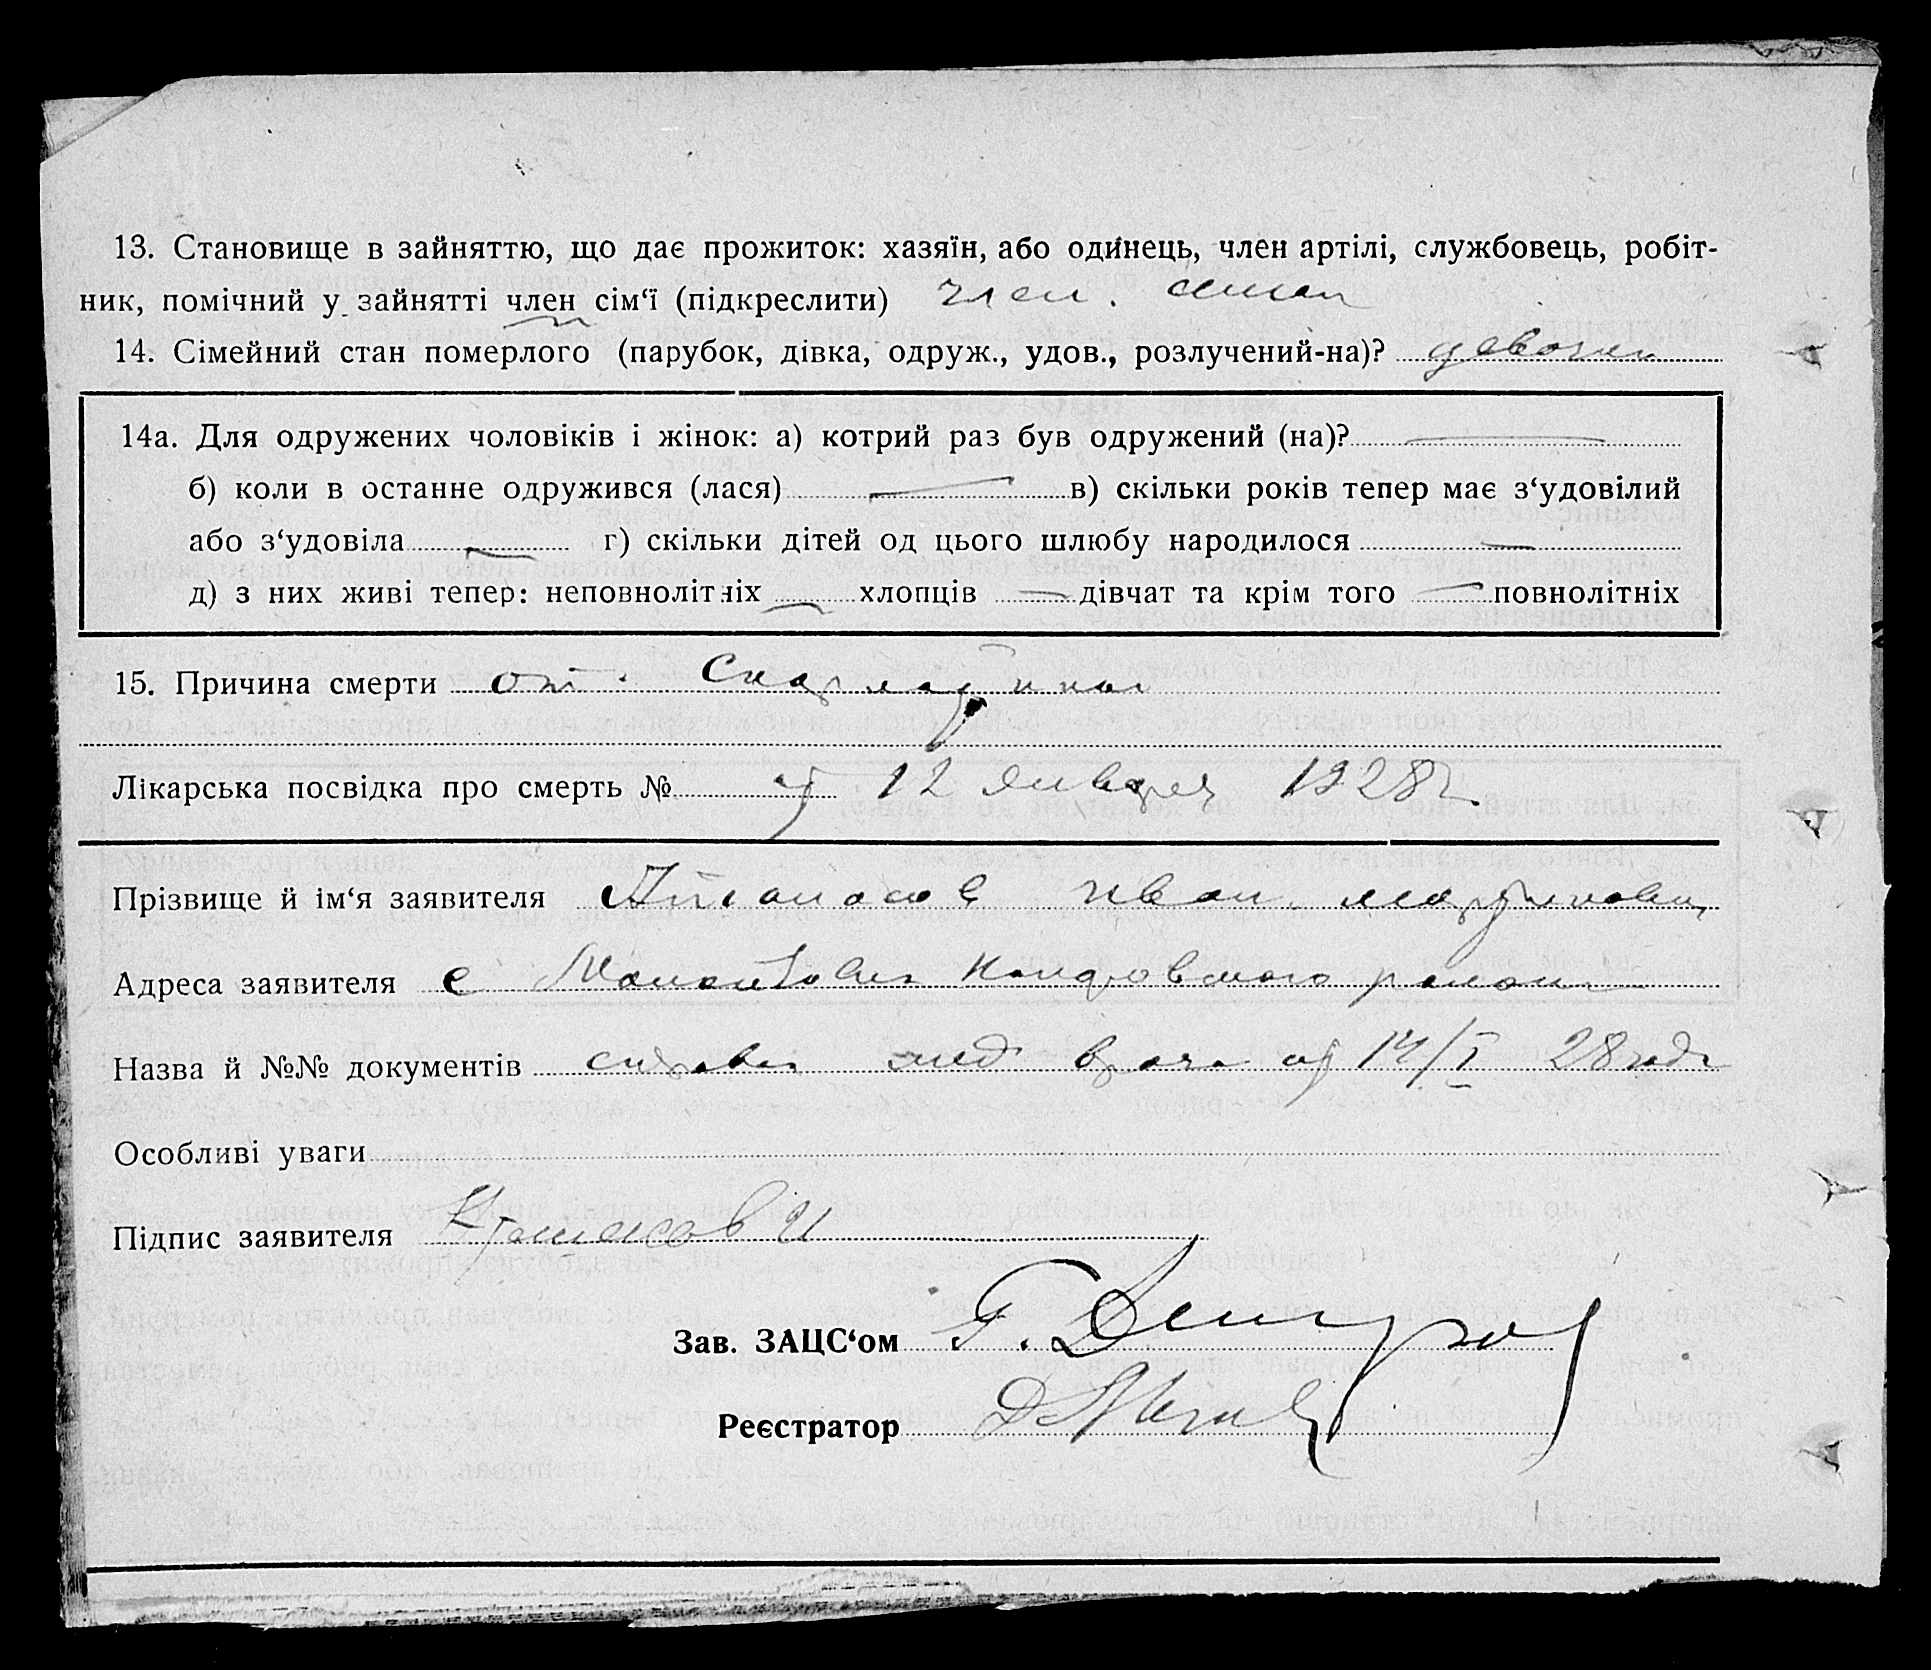 13. Становище в зайняттю, що дає прожиток: хазяїн, або одинець, член артілі, службовець, робіт-
ник, помічний у зайнятті член сім‘ї (підкреслити) член. семьи
14. Сімейний стан померлого (парубок, дівка, одруж., удов., розлучений-на)? девочка
14а. Для одружених чоловіків і жінок: а) котрий раз був одружений (на)?
б) коли в останне одружився (лася) в) скільки років тепер має з‘удовілий
або з‘удовіла г) скільки дітей од цього шлюбу народилося
д) з них живі тепер: неповнолітніх хлопців дівчат та крім того повнолітніх
15. Причина смерти от. Скарлатины
Лікарська посвідка про смерть № от 12 января 1928 г.
Прізвище й ім‘я заявителя Иван
Адреса заявителя с района
Назва й №№ документів справка мед врача от 14/I 28 года
Особливі уваги
Підпис заявителя И
Зав. ЗАЦС‘ом Г.
Реєстратор